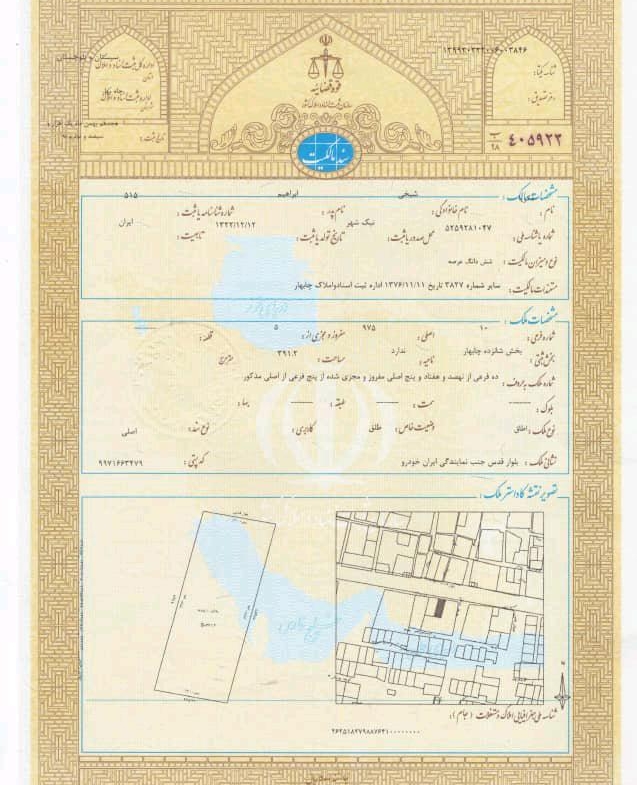 شناسه یکتا: ۱۳۹۹۳۰۲۳۲۰۷۶۰۰۳۸۴۶
دفتر تصدیق:
قوه قضائیه
سازمان ثبت اسناد و املاک کشور
اداره کل ثبت اسناد و املاک
استان
اداره ثبت اسناد و املاک
شهرستان
تاریخ ثبت:
۴۰۵۹۲۳
۹۸
سند مالکیت
مشخصات مالک:
نام: نام خانوادگی: شیخی نام پدر: ابراهیم شماره شناسنامه یا ثبت: ۵۱۵
شماره یا شناسه ملی: ۵۲۵۹۲۸۱۰۴۷ محل صدور یا ثبت: نیک شهر تاریخ تولد یا ثبت: ۱۳۲۲/۱۲/۱۲ تابعیت: ایران
نوع و میزان مالکیت: شش دانگ عرصه
مستندات مالکیت: سایر شماره ۳۸۲۷ تاریخ ۱۳۷۶/۱۱/۱۱ اداره ثبت اسنادواملاک چابهار
مشخصات ملک:
شماره فرعی: ۱۰ اصلی: ۹۷۵ مفروز و مجزی از: ۵ قطعه:
بخش ثبتی: بخش شانزده چابهار ناحیه: ندارد مساحت: ۳۹۱.۲ مترمربع
شماره ملک به حروف: ده فرعی از نهصد و هفتاد و پنج اصلی مفروز و مجزی شده از پنج فرعی از اصلی مذکور
بلوک: سمت: طبقه: بها:
نوع ملک: اطاق وضعیت خاص: طلق کاربری: نوع سند: اصلی
نشانی ملک: بلوار قدس جنب نمایندگی ایران خودرو کد پستی: ۹۹۷۱۶۶۳۴۷۹
تصویر نقشه کاداستر ملک:
دریای خزر
خلیج فارس
N
شناسه ملی جغرافیایی املاک و مستغلات (جام):
۲۶۲۵۱۸۲۷۹۸۸۷۶۳۱۰۰۰۰۰۰۰۰